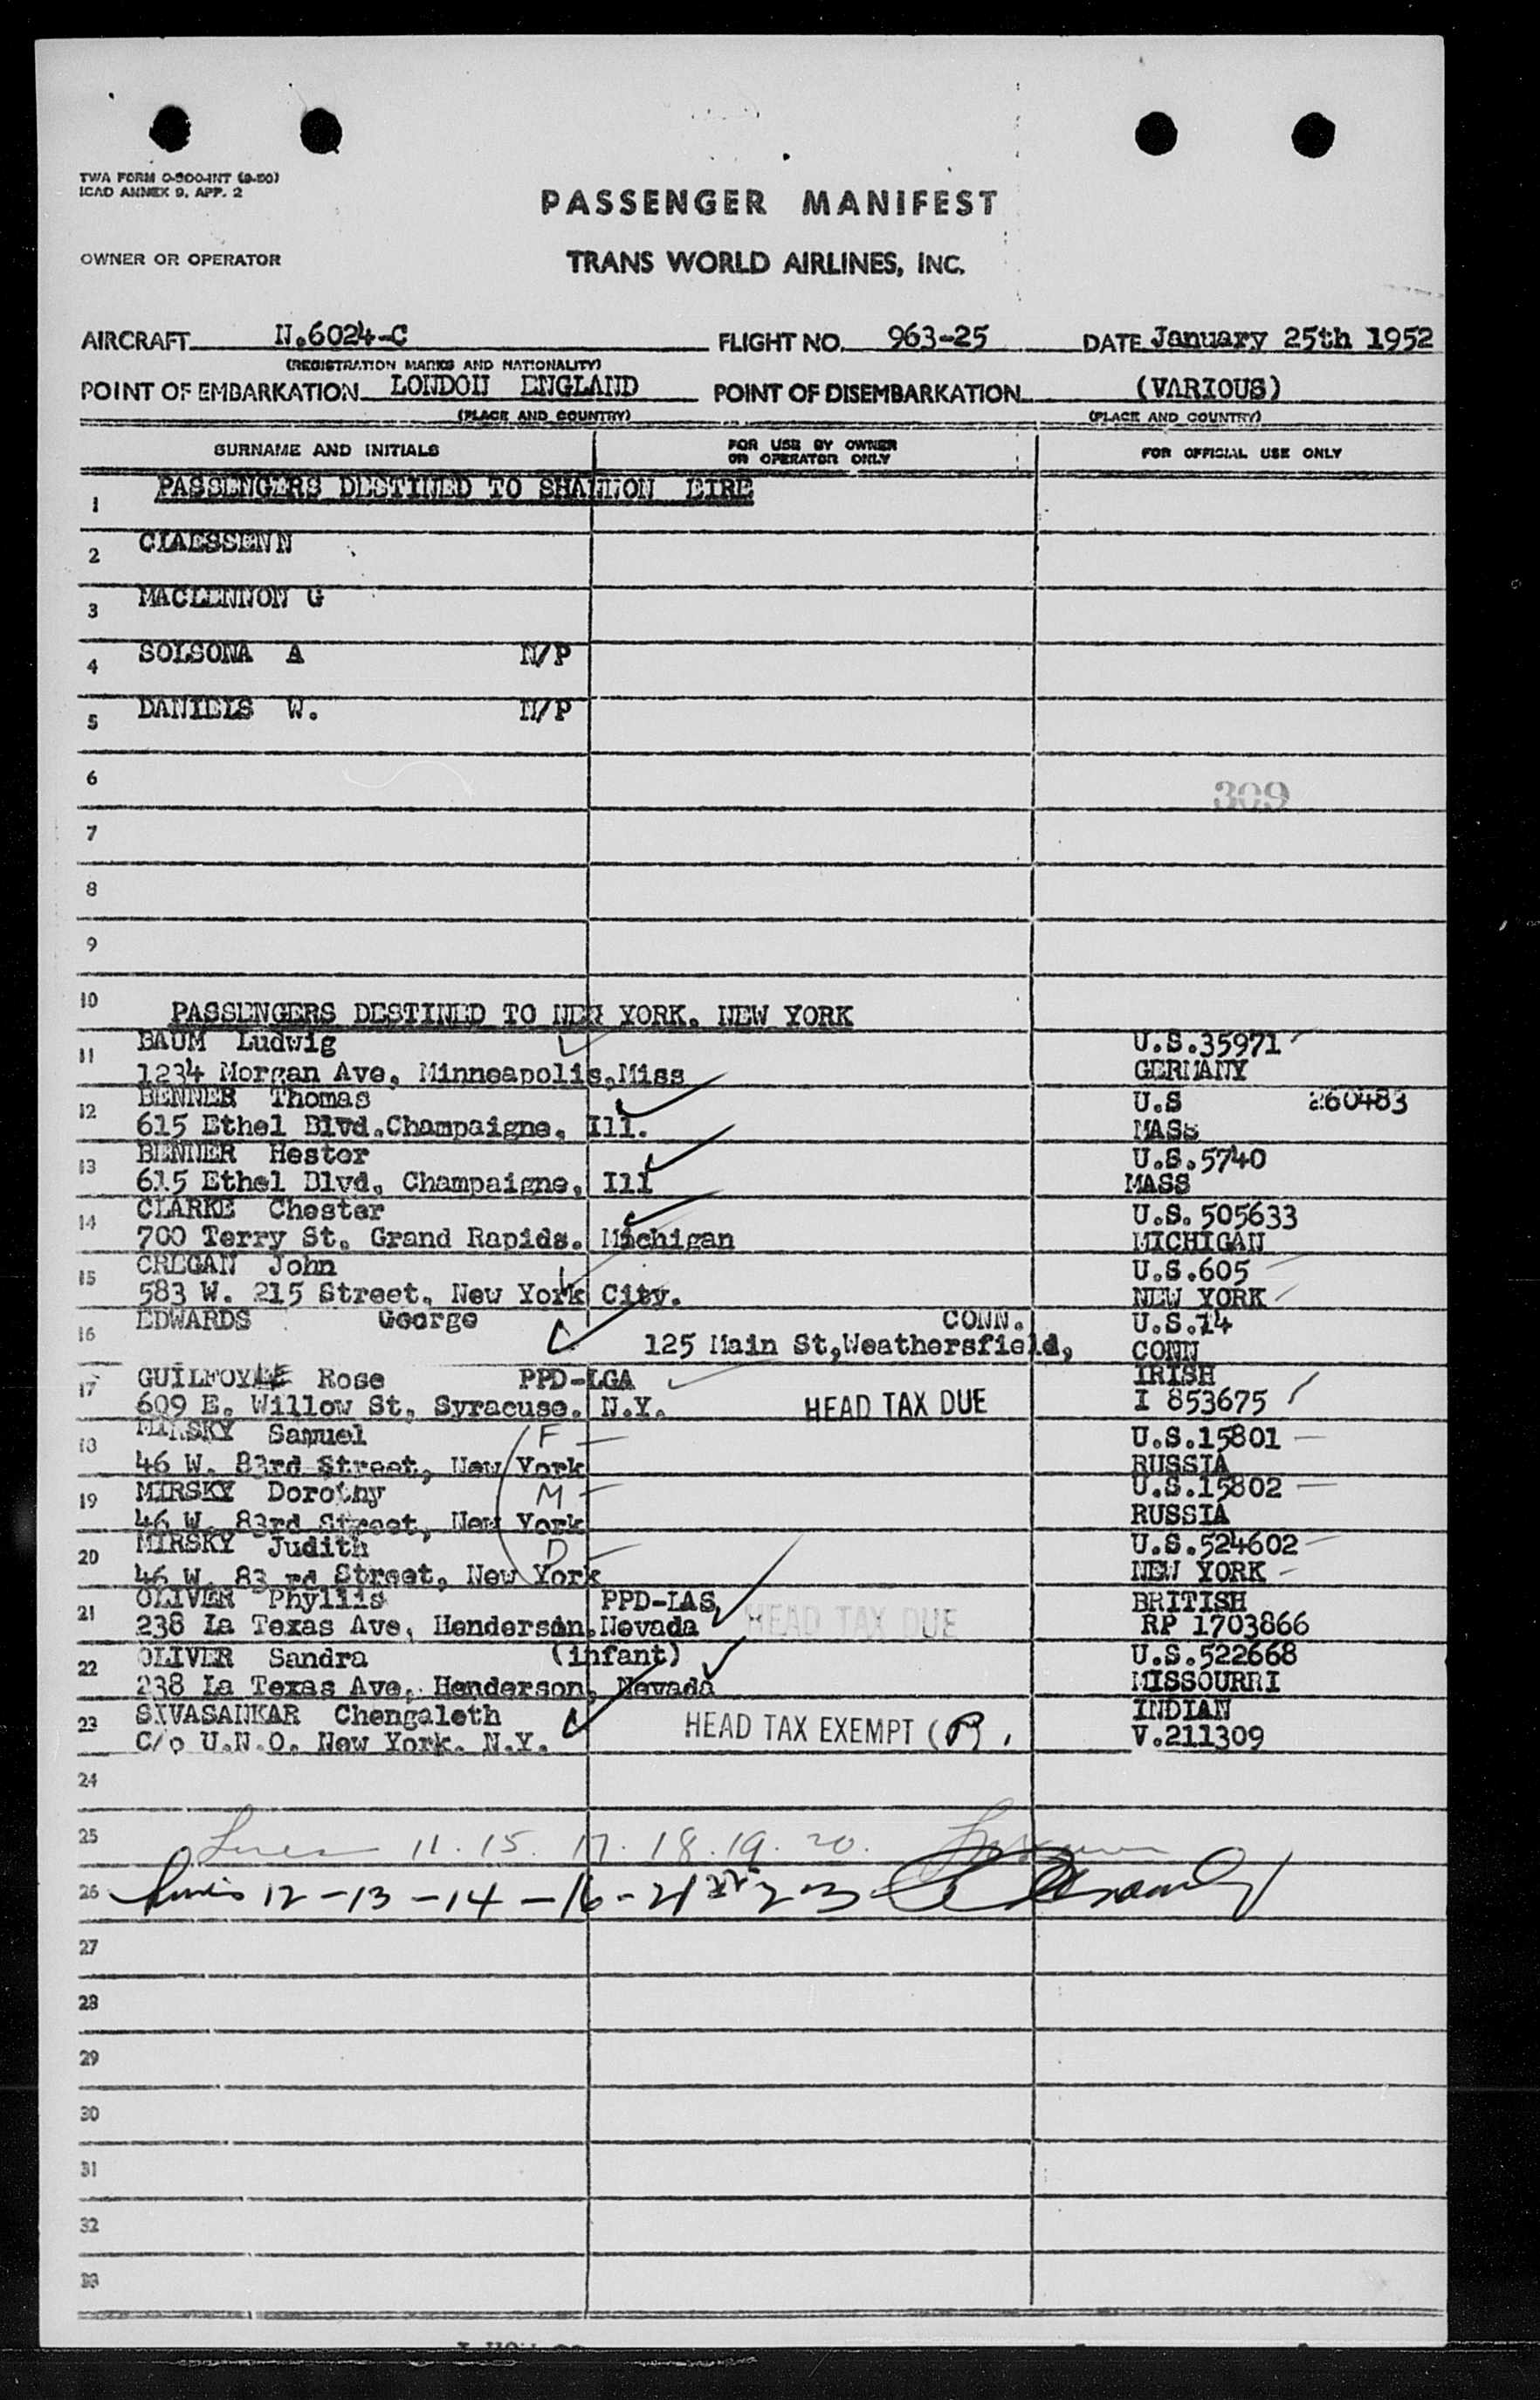 TWA FORM O-500-INT (9-50)
ICAO ANNEX 9, APP. 2
PASSENGER MANIFEST
OWNER OR OPERATOR
TRANS WORLD AIRLINES, INC.
AIRCRAFT N.6024-C FLIGHT NO. 963-25 DATE January 25th 1952
(REGISTRATION MARKS AND NATIONALITY)
POINT OF EMBARKATION LONDON ENGLAND POINT OF DISEMBARKATION (VARIOUS)
(PLACE AND COUNTRY) (PLACE AND COUNTRY)
SURNAME AND INITIALS FOR USE BY OWNER OR OPERATOR ONLY FOR OFFICIAL USE ONLY
1 PASSENGERS DESTINED TO SHANNON EIRE
2 CLAESSENN
3 MACLENNON G
4 SOLSONA A N/P
5 DANIELS W. N/P
6
309
7
8
9
10 PASSENGERS DESTINED TO NEW YORK. NEW YORK
11 BAUM Ludwig U.S.35971
1234 Morgan Ave, Minneapolis,Miss GERMANY
12 BENNER Thomas U.S 260483
615 Ethel Blvd.Champaigne, Ill. MASS
13 BENNER Hester U.S.5740
615 Ethel Blvd, Champaigne, Ill MASS
14 CLARKE Chester U.S. 505633
700 Terry St, Grand Rapids. Michigan MICHIGAN
15 CREGAN John U.S.605
583 W. 215 Street, New York City. NEW YORK
16 EDWARDS George CONN. U.S.14
125 Main St,Weathersfield, CONN
17 GUILFOYLE Rose PPD-LGA IRISH
609 E. Willow St, Syracuse. N.Y. HEAD TAX DUE I 853675
18 MIRSKY Samuel F U.S.15801
46 W. 83rd Street, New York RUSSIA
19 MIRSKY Dorothy M U.S.15802
46 W. 83rd Street, New York RUSSIA
20 MIRSKY Judith D U.S.524602
46 W. 83 rd Street, New York NEW YORK
21 OLIVER Phyllis PPD-LAS BRITISH
238 La Texas Ave, Henderson.Nevada HEAD TAX DUE RP 1703866
22 OLIVER Sandra (infant) U.S.522668
238 La Texas Ave, Henderson, Nevada MISSOURRI
23 SIVASANKAR Chengaleth INDIAN
C/o U.N.O. New York. N.Y. HEAD TAX EXEMPT (R. V.211309
24
25 Lines 11. 15. 17. 18. 19. 20.
26 Lines 12-13-14-16-21 22 23
27
28
29
30
31
32
33